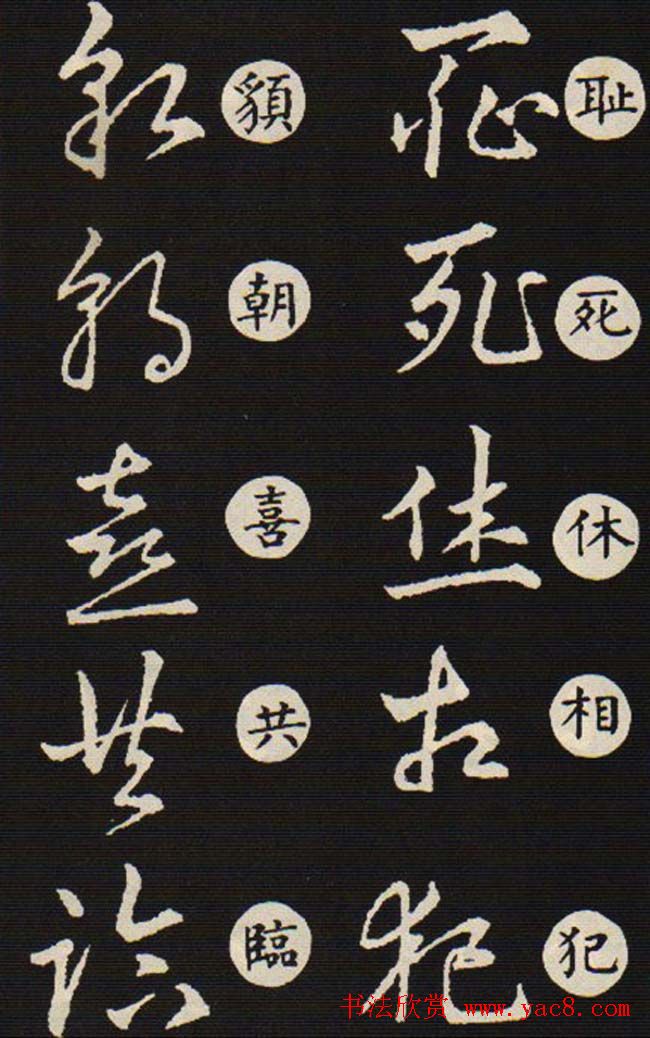 耻
死
休
相
犯
朝
喜
共
臨
书法欣赏 www.yac8.com